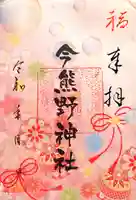 福
奉拝
今熊野神社
令和 年 月